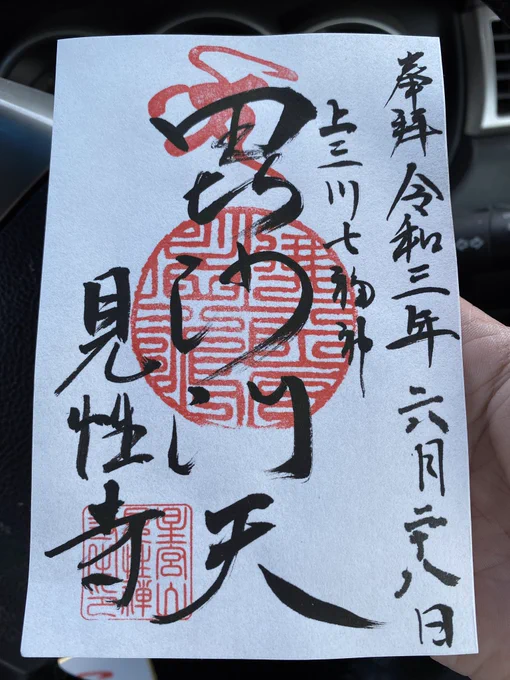 奉拝 令和三年 六月二十八日
上三川七福神
毘沙門天
見性寺